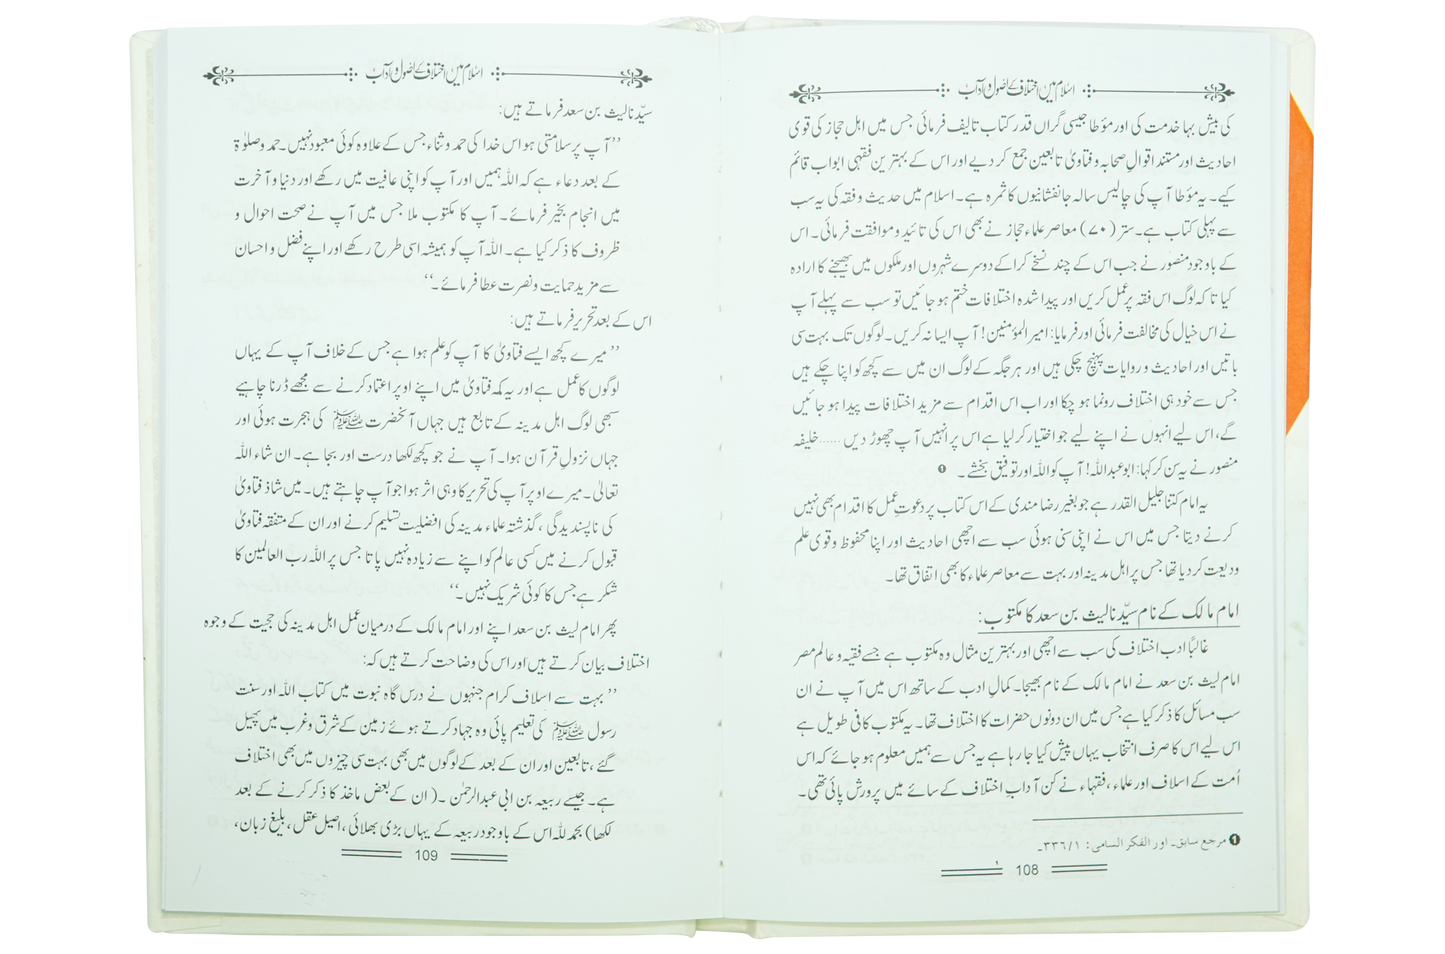 اسلام میں اختلاف کے اصول و آداب
کی بیش بہا خدمت کی اور مؤطا جیسی گراں قدر کتاب تالیف فرمائی جس میں اہل حجاز کی قوی
احادیث اور مستند اقوالِ صحابہ و فتاویٰ تابعین جمع کر دیے اور اس کے بہترین فقہی ابواب قائم
کیے۔ یہ مؤطا آپ کی چالیس سالہ جانفشانیوں کا ثمرہ ہے۔ اسلام میں حدیث و فقہ کی یہ سب
سے پہلی کتاب ہے۔ ستر (۷۰) معاصر علماء حجاز نے بھی اس کی تائید و موافقت فرمائی۔ اس
کے باوجود منصور نے جب اس کے چند نسخے کرا کے دوسرے شہروں اور ملکوں میں بھیجنے کا ارادہ
کیا تا کہ لوگ اس فقہ پر عمل کریں اور پیدا شدہ اختلافات ختم ہو جائیں تو سب سے پہلے آپ
نے اس خیال کی مخالفت فرمائی اور فرمایا: امیر المؤمنین! آپ ایسا نہ کریں۔ لوگوں تک بہت سی
باتیں اور احادیث و روایات پہنچ چکی ہیں اور ہر جگہ کے لوگ ان میں سے کچھ کو اپنا چکے ہیں
جس سے خود ہی اختلاف رونما ہو چکا اور اب اس اقدام سے مزید اختلافات پیدا ہو جائیں
گے، اس لیے انہوں نے اپنے لیے جو اختیار کر لیا ہے اس پر انہیں آپ چھوڑ دیں ...... خلیفہ
منصور نے یہ سن کر کہا: ابو عبداللہ! آپ کو اللہ اور توفیق بخشے۔ ❶
یہ امام کتنا جلیل القدر ہے جو بغیر رضا مندی کے اس کتاب پر دعوتِ عمل کا اقدام بھی نہیں
کرنے دیتا جس میں اس نے اپنی سنی ہوئی سب سے اچھی احادیث اور اپنا محفوظ و قوی علم
ودیعت کر دیا تھا جس پر اہل مدینہ اور بہت سے معاصر علماء کا بھی اتفاق تھا۔
امام مالک کے نام سیّدنا لیث بن سعد کا مکتوب:
غالباً ادب اختلاف کی سب سے اچھی اور بہترین مثال وہ مکتوب ہے جسے فقیہ و عالم مصر
امام لیث بن سعد نے امام مالک کے نام بھیجا۔ کمالِ ادب کے ساتھ اس میں آپ نے ان
سب مسائل کا ذکر کیا ہے جس میں ان دونوں حضرات کا اختلاف تھا۔ یہ مکتوب کافی طویل ہے
اس لیے اس کا صرف انتخاب یہاں پیش کیا جا رہا ہے یہ جس سے ہمیں معلوم ہو جائے کہ اس
اُمت کے اسلاف اور علماء، فقہاء نے کن آداب اختلاف کے سائے میں پرورش پائی تھی۔
❶ مرجع سابق۔ اور الفکر السامی: ۱/۳۳٦۔
108
اسلام میں اختلاف کے اصول و آداب
سیّدنا لیث بن سعد فرماتے ہیں:
’’آپ پر سلامتی ہو اس خدا کی حمد و ثناء جس کے علاوہ کوئی معبود نہیں۔ حمد و صلوٰۃ
کے بعد دعاء ہے کہ اللہ ہمیں اور آپ کو اپنی عافیت میں رکھے اور دنیا و آخرت
میں انجام بخیر فرمائے۔ آپ کا مکتوب ملا جس میں آپ نے صحت احوال و
ظروف کا ذکر کیا ہے۔ اللہ آپ کو ہمیشہ اسی طرح رکھے اور اپنے فضل و احسان
سے مزید حمایت و نصرت عطا فرمائے۔‘‘
اس کے بعد تحریر فرماتے ہیں:
’’میرے کچھ ایسے فتاویٰ کا آپ کو علم ہوا ہے جس کے خلاف آپ کے یہاں
لوگوں کا عمل ہے اور یہ کہ فتاویٰ میں اپنے اوپر اعتماد کرنے سے مجھے ڈرنا چاہیے
سبھی لوگ اہل مدینہ کے تابع ہیں جہاں آنحضرت ﷺ کی ہجرت ہوئی اور
جہاں نزولِ قرآن ہوا۔ آپ نے جو کچھ لکھا درست اور بجا ہے۔ ان شاء اللہ
تعالیٰ۔ میرے اوپر آپ کی تحریر کا وہی اثر ہوا جو آپ چاہتے ہیں۔ میں شاذ فتاویٰ
کی ناپسندیدگی، گذشتہ علماء مدینہ کی افضلیت تسلیم کرنے اور ان کے متفقہ فتاویٰ
قبول کرنے میں کسی عالم کو اپنے سے زیادہ نہیں پاتا جس پر اللہ رب العالمین کا
شکر ہے جس کا کوئی شریک نہیں۔‘‘
پھر امام لیث بن سعد اپنے اور امام مالک کے درمیان عمل اہل مدینہ کی حجیت کے وجوہ
اختلاف بیان کرتے ہیں اور اس کی وضاحت کرتے ہیں کہ:
’’بہت سے اسلاف کرام جنہوں نے درس گاہ نبوت میں کتاب اللہ اور سنت
رسول ﷺ کی تعلیم پائی وہ جہاد کرتے ہوئے زمین کے شرق و غرب میں پھیل
گئے، تابعین اور ان کے بعد کے لوگوں میں بھی بہت سی چیزوں میں بھی اختلاف
ہے۔ جیسے ربیعہ بن ابی عبدالرحمٰن۔ (ان کے بعض ماخذ کا ذکر کرنے کے بعد
لکھا) بحمد للہ اس کے باوجود ربیعہ کے یہاں بڑی بھلائی، اصیل عقل، بلیغ زبان،
109